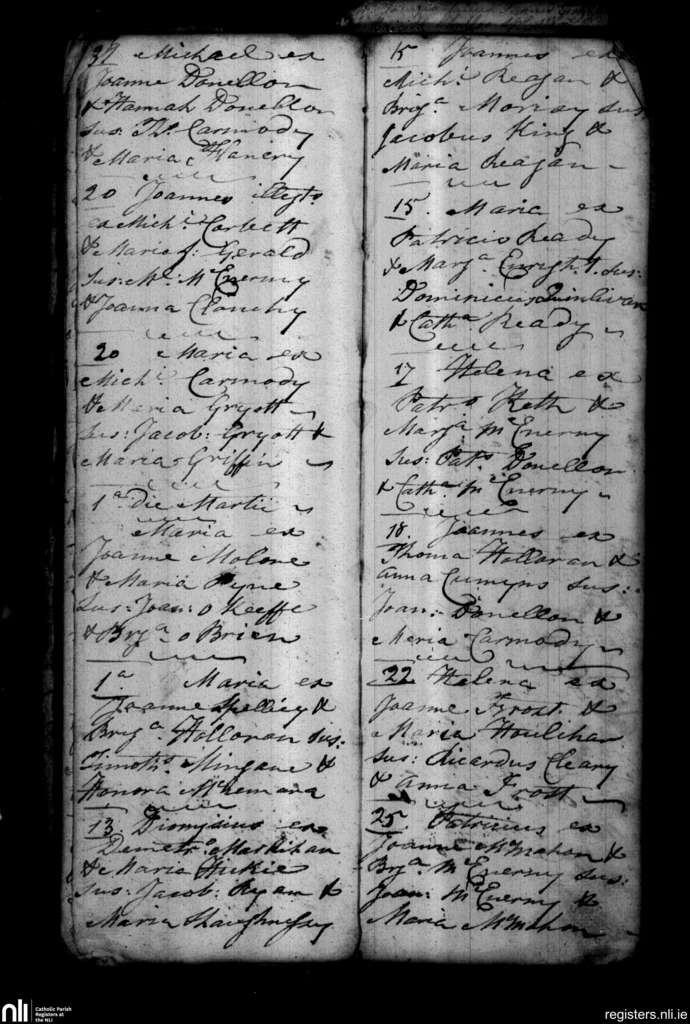 Michael ex
Joanne Donellon
& Hannah Donellon
sus: Ths. Carmody
& Maria
20 Joannes illegt.
ex Michl. Corbett
& Maria f: Gerald
sus: Ml. McEnermy
& Joanna Clonchy
20 Maria ex
Michl. Carmody
& Maria Gryott
sus: Jacob: Gryott &
Maria Griffin
1a die Martii
Maria ex
Joanne Molone
& Maria Pyne
sus: Joan: o Keeffe
& Brga. o Brien
1a. Maria ex
Joanne Spellicy &
Brga. Holloran sus:
Timoths. Mingane &
Honora McNemara
13 Dionysius ex
Demetro
& Maria Hickie
sus: Jacob: Ryan &
Maria Shaughnessy
15 Joannes ex
Michl. Reagan &
Brga. sus
Jacobus King &
Maria Reagan
15. Maria ex
Patricio Ready
& Marga. Enright. sus:
Dominicus Quinlivan
& Catha. Ready
17 Helena ex
Patro Keth &
Marga. McEnermy
sus: Pats. Donellon
& Catha. McEnermy
18. Joannes ex
Thoma Holloran &
anna Cumyns sus:
Joan: Donellon &
Maria Carmody
22 Helena ex
Joanne Frost &
Maria Houlihan
sus: Ricardus Cleary
& anna Frost
25. Patricius ex
Joanne McMahon &
Brga. McEnermy sus:
Joan: McEnermy &
Maria McMahon
nli Catholic Parish
Registers at
the NLI
registers.nli.ie